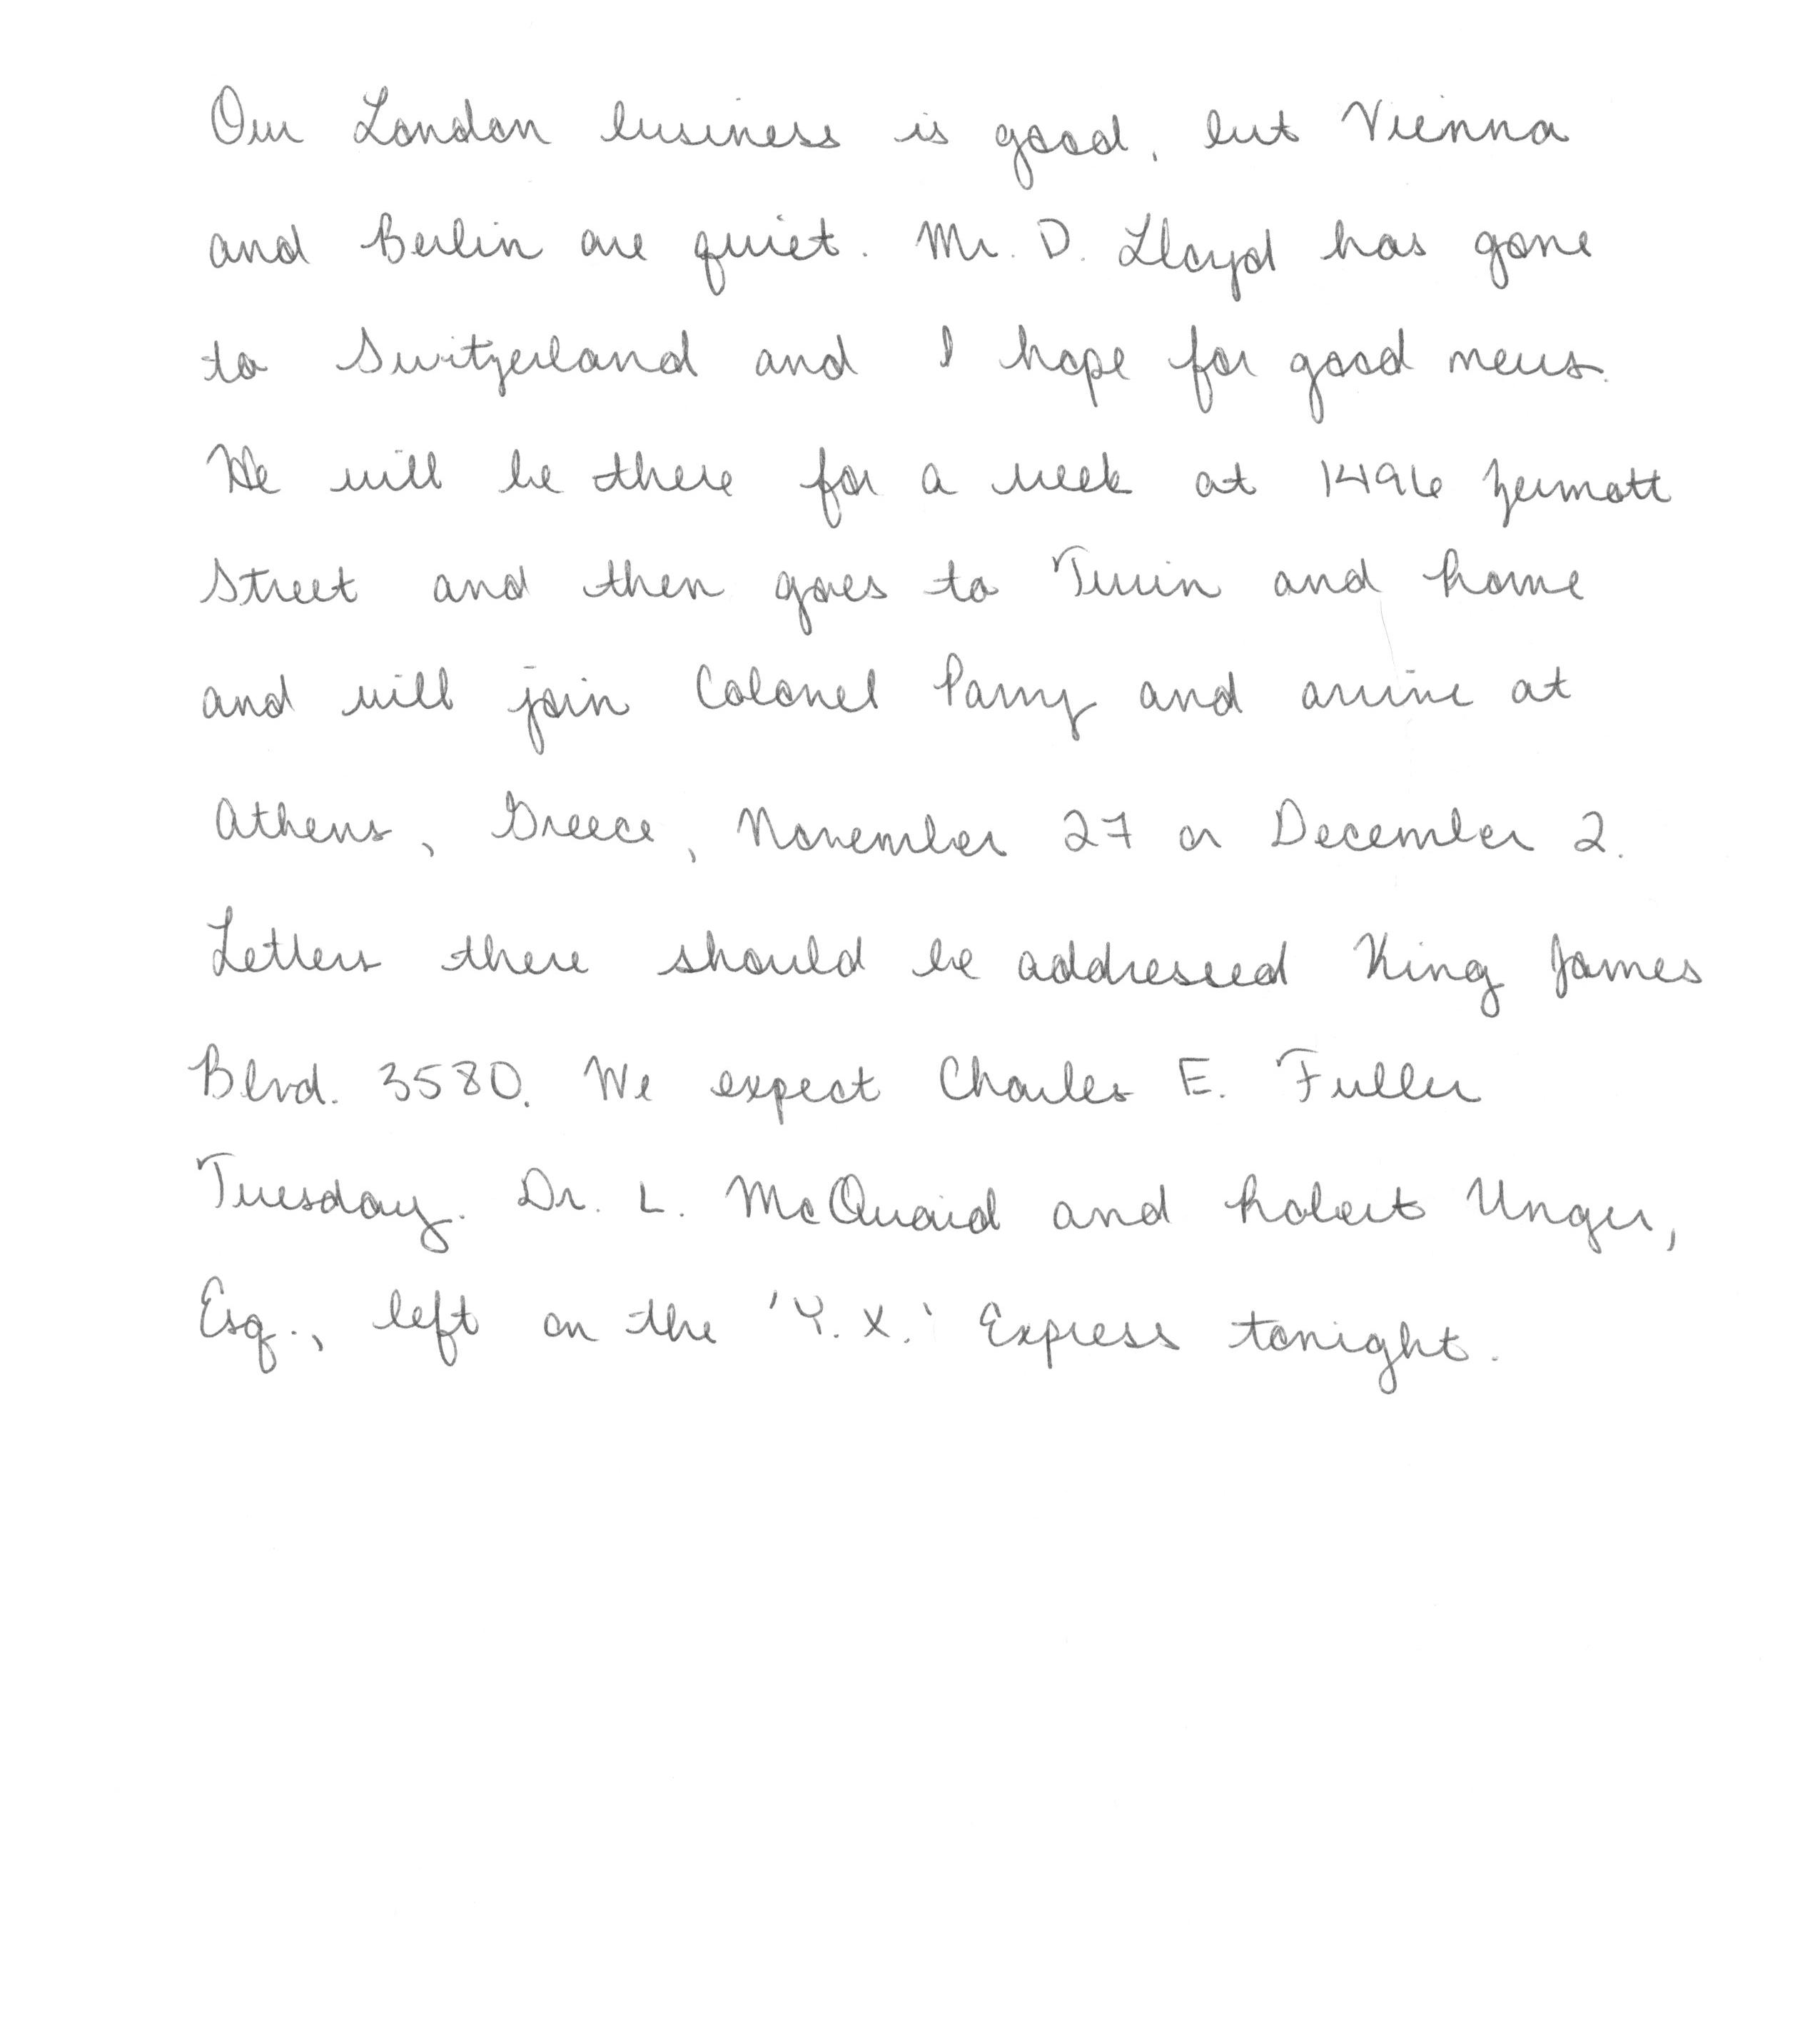 Our London business is good, but Vienna
and Berlin are quiet. Mr. D. Lloyd has gone
to Switzerland and I hope for good news.
He will be there for a week at 1496 Zermott
Street and then goes to Turin and home
and will join Colonel Parry and arrive at
Athens, Greece, November 27 or December 2.
Letters there should be addressed King James
Blvd. 3580. We expect Charles E. Fuller
Tuesday. Dr. L. McQuaid and Robert Unger,
Esq., left on the 'Y.X.' Express tonight.